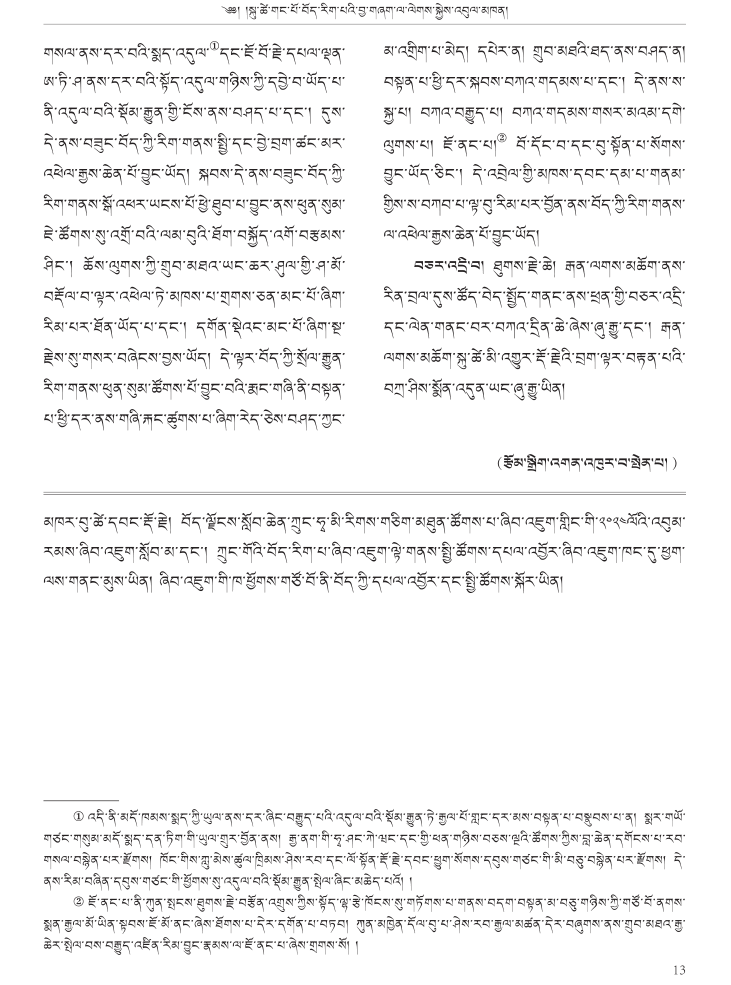 ༄༅། །སྐུ་ཚེ་གང་པོ་བོད་རིག་པའི་བྱ་གཞག་ལ་ལེགས་སྐྱེས་འབུལ་མཁན།
གསལ་ནས་དར་བའི་སྨད་འདུལ་①དང་ཇོ་བོ་རྗེ་དཔལ་ལྡན་
ཨ་ཏི་ཤ་ནས་དར་བའི་སྟོད་འདུལ་གཉིས་ཀྱི་དབྱེ་བ་ཡོད་པ་
ནི་འདུལ་བའི་སྡོམ་རྒྱུན་གྱི་ངོས་ནས་བཤད་པ་དང་། དུས་
དེ་ནས་བཟུང་བོད་ཀྱི་རིག་གནས་སྤྱི་དང་བྱེ་བྲག་ཚང་མར་
འཕེལ་རྒྱས་ཆེན་པོ་བྱུང་ཡོད། སྐབས་དེ་ནས་བཟུང་བོད་ཀྱི་
རིག་གནས་སྒོ་འཕར་ཡངས་པོ་ཕྱེ་ཐུབ་པ་བྱུང་ནས་ཕུན་སུམ་
ཇེ་ཚོགས་སུ་འགྲོ་བའི་ལམ་བུའི་ཐོག་བསྐྱོད་འགོ་བརྩམས་
ཤིང་། ཆོས་ལུགས་ཀྱི་གྲུབ་མཐའ་ཡང་ཆར་ཤུལ་གྱི་ཤ་མོ་
བརྡོལ་བ་ལྟར་འཕེལ་ཏེ་མཁས་པ་གྲགས་ཅན་མང་པོ་ཞིག་
རིམ་པར་ཐོན་ཡོད་པ་དང་། དགོན་སྡེའང་མང་པོ་ཞིག་སྔ་
རྗེས་སུ་གསར་བཞེངས་བྱས་ཡོད། དེ་ལྟར་བོད་ཀྱི་སྲོལ་རྒྱུན་
རིག་གནས་ཕུན་སུམ་ཚོགས་པོ་བྱུང་བའི་རྨང་གཞི་ནི་བསྟན་
པ་ཕྱི་དར་ནས་གཞི་རྐང་ཚུགས་པ་ཞིག་རེད་ཅེས་བཤད་ཀྱང་
མ་འགྲིག་པ་མེད། དཔེར་ན། གྲུབ་མཐའི་ཐད་ནས་བཤད་ན།
བསྟན་པ་ཕྱི་དར་སྐབས་བཀའ་གདམས་པ་དང་། དེ་ནས་ས་
སྐྱ་པ། བཀའ་བརྒྱུད་པ། བཀའ་གདམས་གསར་མའམ་དགེ་
ལུགས་པ། ཇོ་ནང་པ།② བོ་དོང་བ་དང་བུ་སྟོན་པ་སོགས་
བྱུང་ཡོད་ཅིང་། དེ་འབྲེལ་གྱི་མཁས་དབང་དམ་པ་གནམ་
གྱིས་ས་བཀབ་པ་ལྟ་བུ་རིམ་པར་བྱོན་ནས་བོད་ཀྱི་རིག་གནས་
ལ་འཕེལ་རྒྱས་ཆེན་པོ་བྱུང་ཡོད།
བཅར་འདྲི་བ། ཐུགས་རྗེ་ཆེ། རྒན་ལགས་མཆོག་ནས་
རིན་བྲལ་དུས་ཚོད་བེད་སྤྱོད་གནང་ནས་ཕྲན་གྱི་བཅར་འདྲི་
དང་ལེན་གནང་བར་བཀའ་དྲིན་ཆེ་ཞེས་ཞུ་རྒྱུ་དང་། རྒན་
ལགས་མཆོག་སྐུ་ཚེ་མི་འགྱུར་རྡོ་རྗེའི་བྲག་ལྟར་བརྟན་པའི་
བཀྲ་ཤིས་སྨོན་འདུན་ཡང་ཞུ་རྒྱུ་ཡིན།
(རྩོམ་སྒྲིག་འགན་འཁུར་བ་སྤེན་པ། )
མཁར་བུ་ཚེ་དབང་རྡོ་རྗེ། བོད་ལྗོངས་སློབ་ཆེན་ཀྲུང་ཧྭ་མི་རིགས་གཅིག་མཐུན་ཚོགས་པ་ཞིབ་འཇུག་གླིང་གི་༢༠༢༤ལོའི་འབུམ་
རམས་ཞིབ་འཇུག་སློབ་མ་དང་། ཀྲུང་གོའི་བོད་རིག་པ་ཞིབ་འཇུག་ལྟེ་གནས་སྤྱི་ཚོགས་དཔལ་འབྱོར་ཞིབ་འཇུག་ཁང་དུ་ཕྱག་
ལས་གནང་མུས་ཡིན། ཞིབ་འཇུག་གི་ཁ་ཕྱོགས་གཙོ་བོ་ནི་བོད་ཀྱི་དཔལ་འབྱོར་དང་སྤྱི་ཚོགས་སྐོར་ཡིན།
① འདི་ནི་མདོ་ཁམས་སྨད་ཀྱི་ཡུལ་ནས་དར་ཞིང་བརྒྱུད་པའི་འདུལ་བའི་སྡོམ་རྒྱུན་ཏེ་རྒྱལ་པོ་གླང་དར་མས་བསྟན་པ་བསྣུབས་པ་ན། སྨར་གཡོ་
གཙང་གསུམ་མདོ་སྨད་དན་ཏིག་གི་ཡུལ་གྲུར་བྱོན་ནས། རྒྱ་ནག་གི་ཧྭ་ཤང་ཀེ་ཝང་དང་གྱི་ཕན་གཉིས་བཅས་ལྔའི་ཚོགས་ཀྱིས་བླ་ཆེན་དགོངས་པ་རབ་
གསལ་བསྙེན་པར་རྫོགས། ཁོང་གིས་ཀླུ་མེས་ཚུལ་ཁྲིམས་ཤེས་རབ་དང་ལོ་སྟོན་རྡོ་རྗེ་དབང་ཕྱུག་སོགས་དབུས་གཙང་གི་མི་བཅུ་བསྙེན་པར་རྫོགས། དེ་
ནས་རིམ་བཞིན་དབུས་གཙང་གི་ཕྱོགས་སུ་འདུལ་བའི་སྡོམ་རྒྱུན་སྤེལ་ཞིང་མཆེད་པའོ། །
② ཇོ་ནང་པ་ནི་ཀུན་སྤངས་ཐུགས་རྗེ་བརྩོན་འགྲུས་ཀྱིས་སྟོད་ལྷ་རྩེ་ཁོངས་སུ་གཏོགས་པ་གནས་བདག་བསྟན་མ་བཅུ་གཉིས་ཀྱི་གཙོ་བོ་ནགས་
སྨན་རྒྱལ་མོ་ཡིན་སྟབས་ཇོ་མོ་ནང་ཞེས་ཐོགས་པ་དེར་དགོན་པ་བཏབ། ཀུན་མཁྱེན་དོལ་བུ་པ་ཤེས་རབ་རྒྱལ་མཚན་དེར་བཞུགས་ནས་གྲུབ་མཐའ་རྒྱ་
ཆེར་སྤེལ་བས་བརྒྱུད་འཛིན་རིམ་བྱུང་རྣམས་ལ་ཇོ་ནང་པ་ཞེས་གྲགས་སོ། །
13